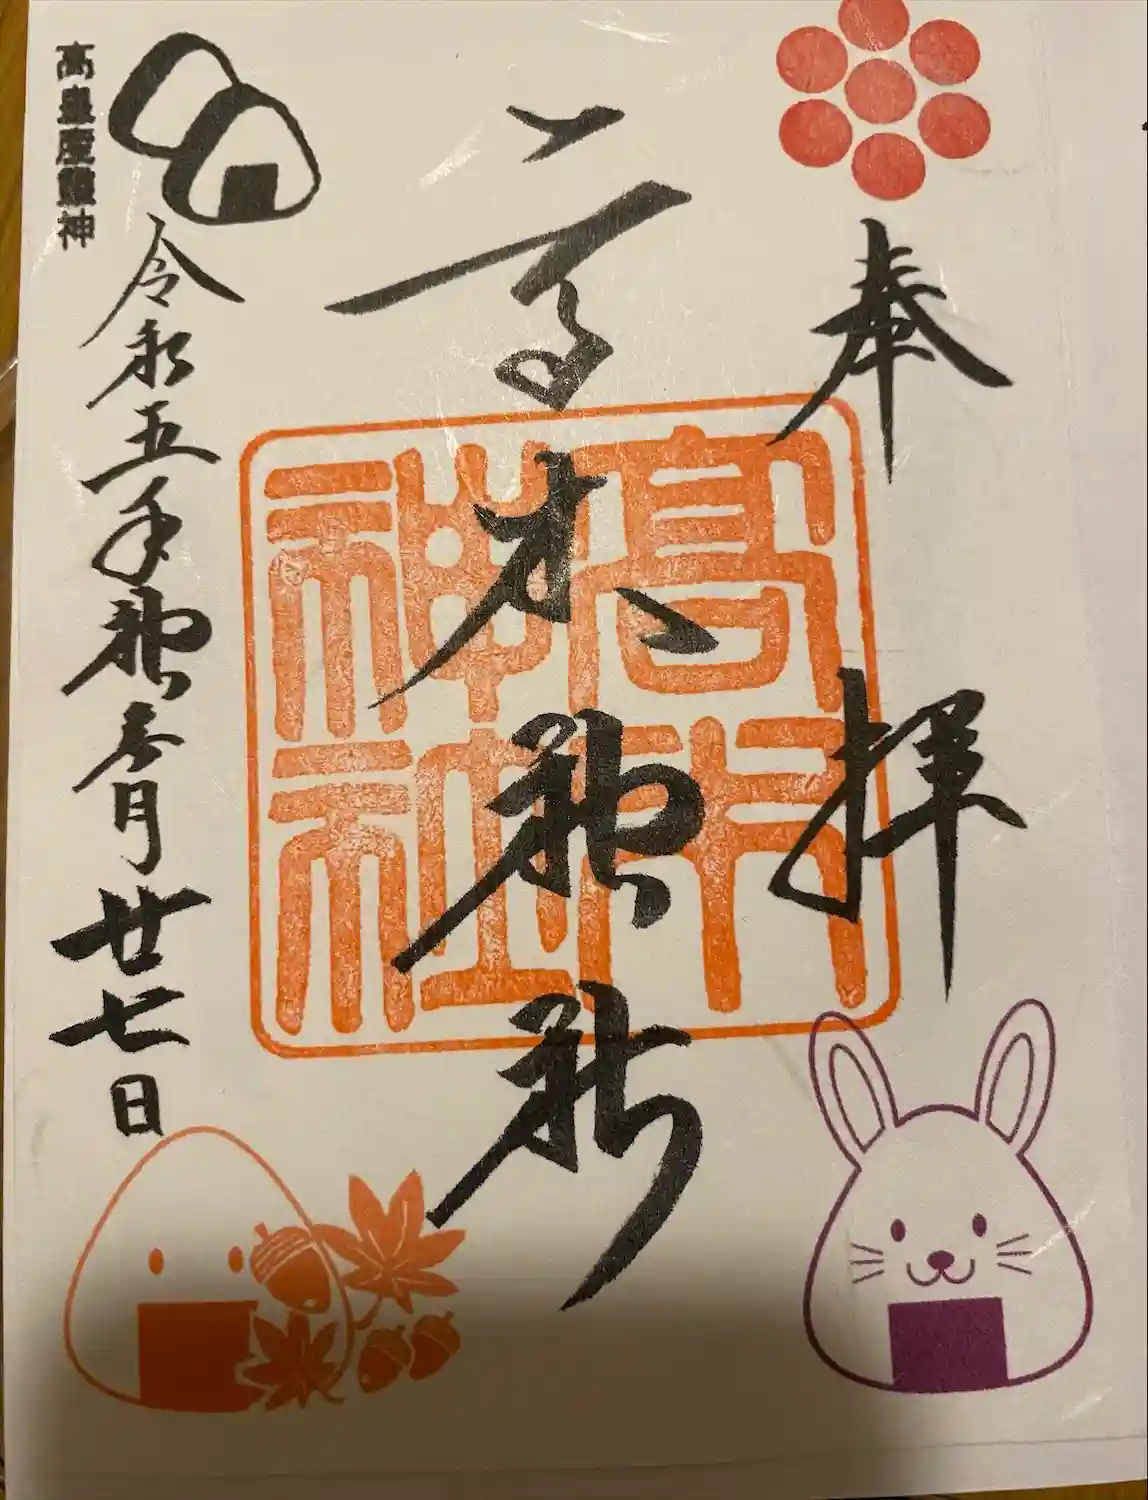 奉拝
高木神社
高木神社
令和五年神無月廿七日
高皇産靈神